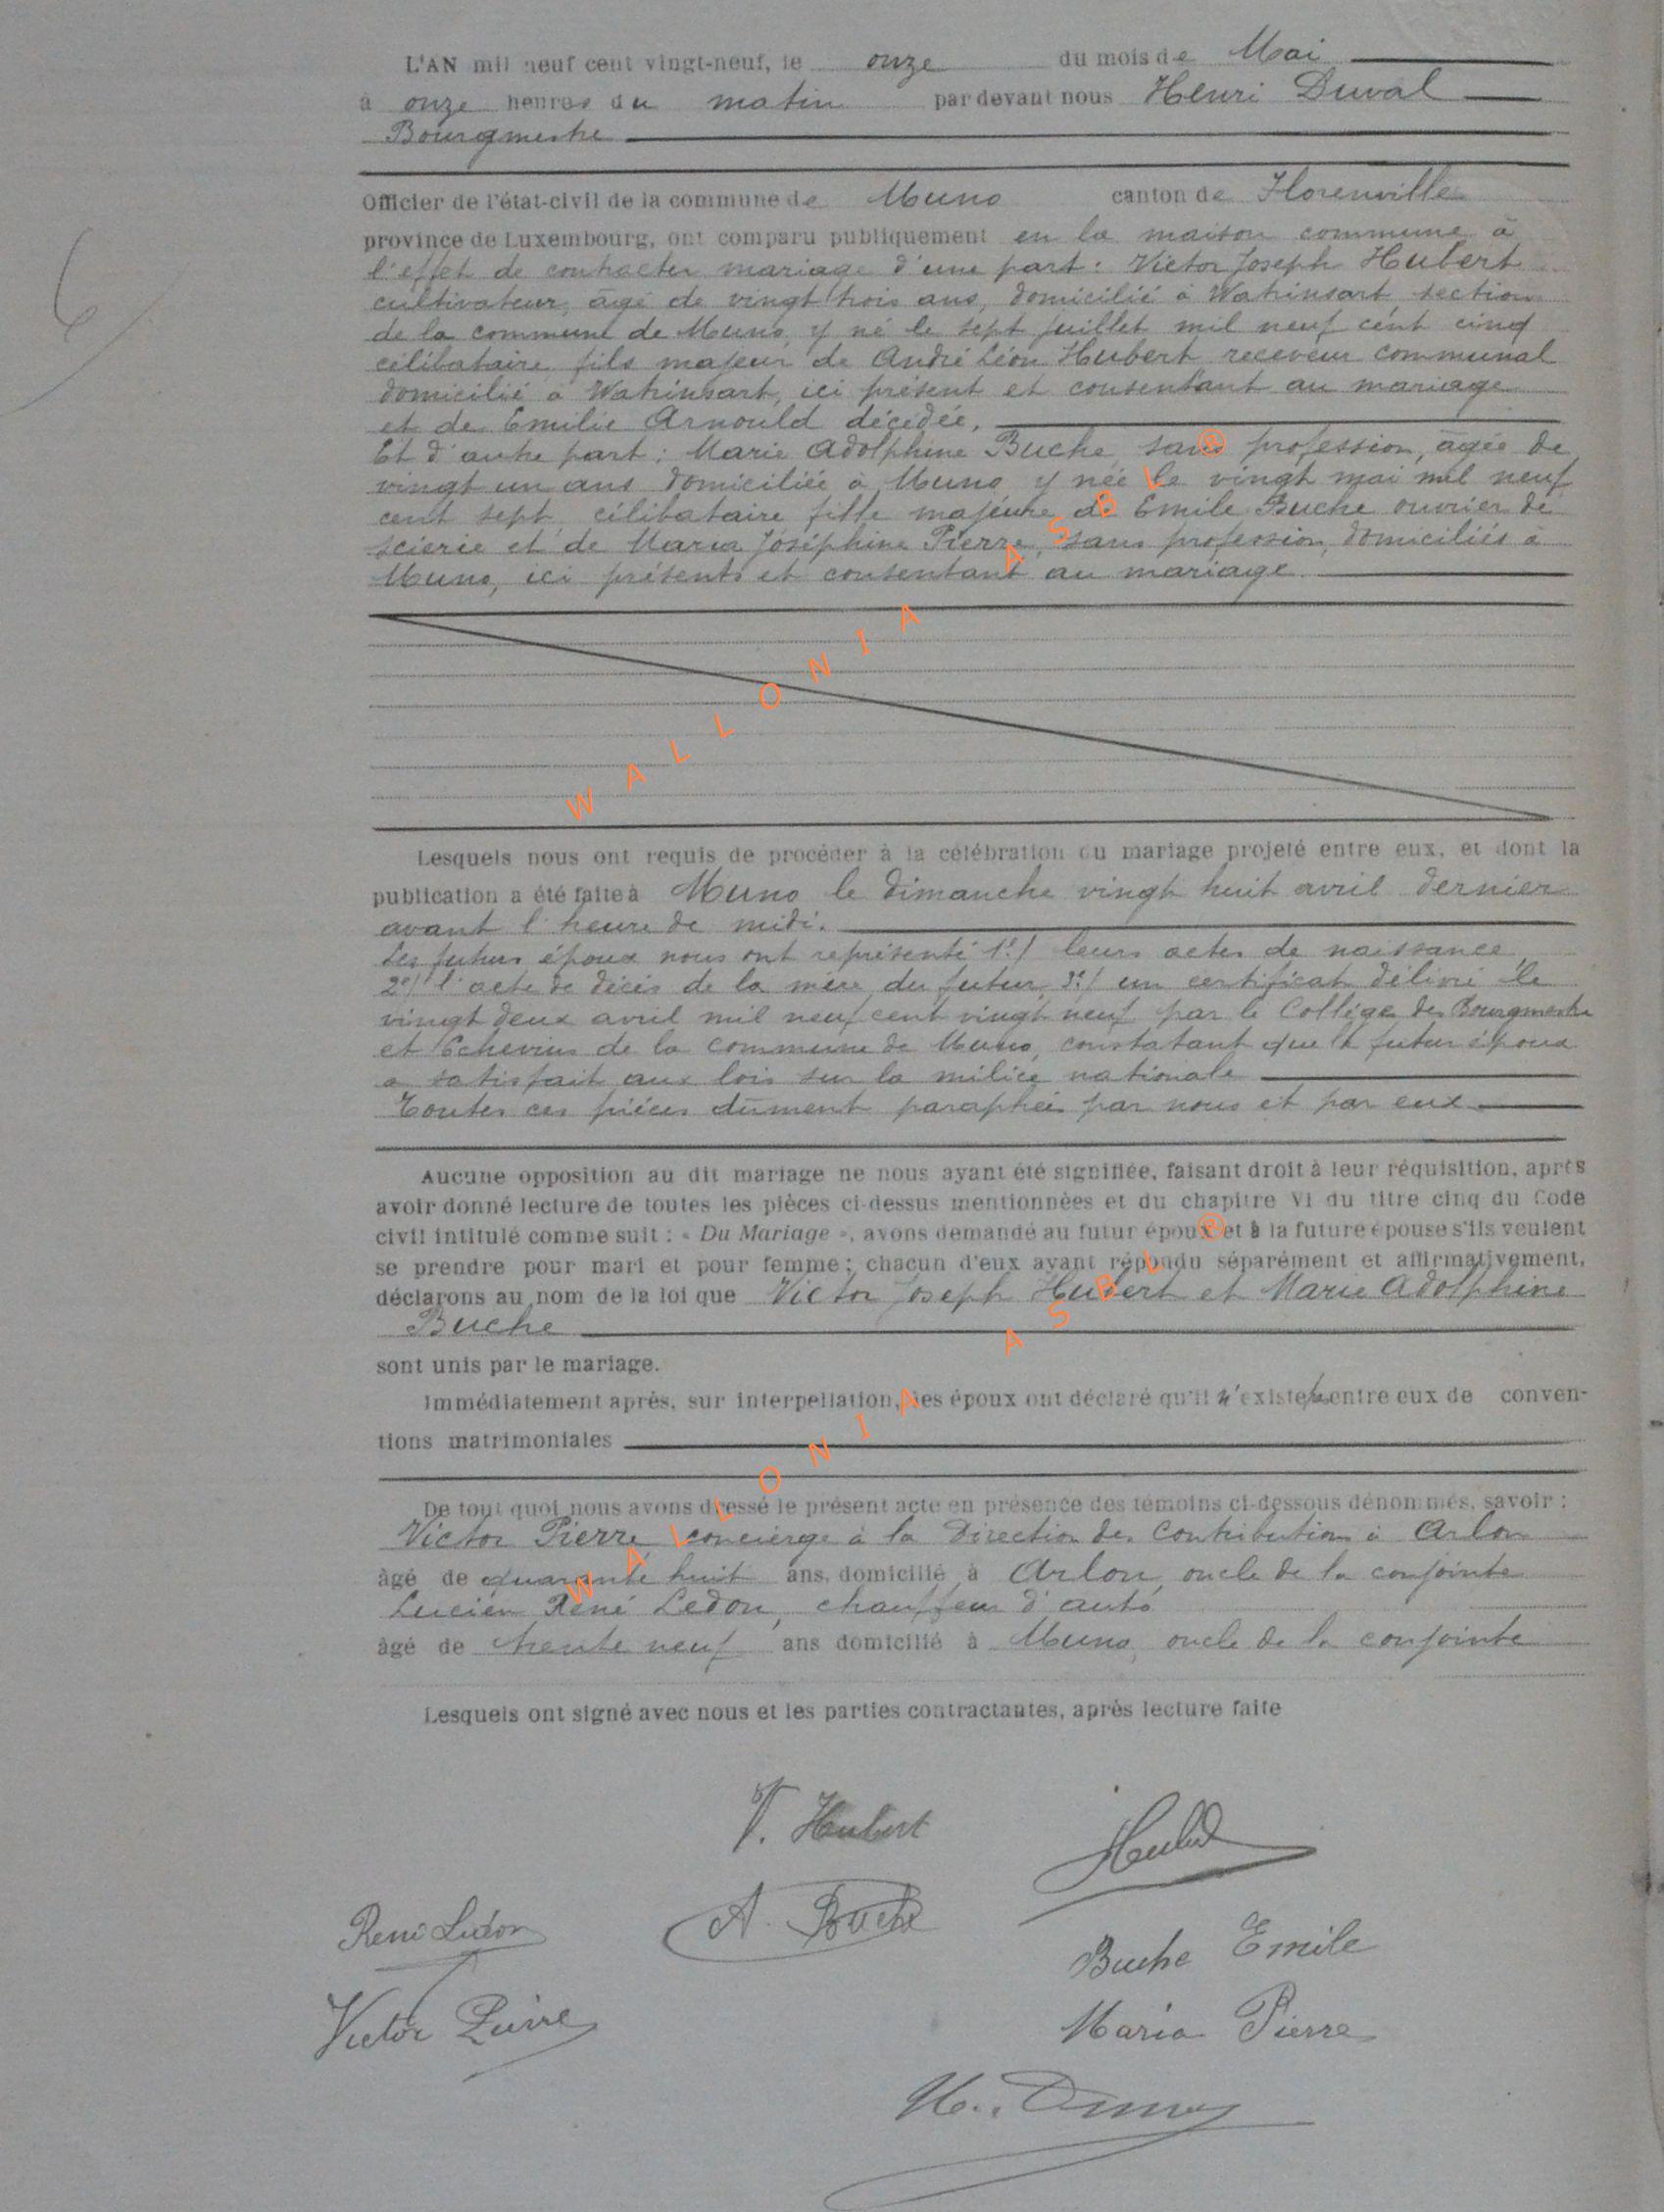 L'AN mil neuf cent vingt-neuf, le onze du mois de Mai
à onze heures du matin par devant nous Henri Duval
Bourgmestre
Officier de l'état-civil de la commune de Muno canton de Florenville
province de Luxembourg, ont comparu publiquement en la maison commune à
l'effet de contracter mariage d'une part : Victor Joseph Hubert
cultivateur, âgé de vingt trois ans, domicilié à Watrinsart section
de la commune de Muno, y né le sept juillet mil neuf cent cinq
célibataire, fils majeur de André Léon Hubert receveur communal
domicilié à Watrinsart, ici présent et consentant au mariage
et de Emilie Arnould décédée.
Et d'autre part : Marie Adolphine Buche, sans profession, âgée de
vingt un ans domiciliée à Muno, y née le vingt mai mil neuf
cent sept, célibataire fille majeure de Emile Buche ouvrier de
scierie et de Maria Joséphine Pierre, sans profession, domiciliés à
Muno, ici présents et consentant au mariage.
WALLONIA ASBL @
Lesquels nous ont requis de procéder à la célébration du mariage projeté entre eux, et dont la
publication a été faite à Muno le dimanche vingt huit avril dernier
avant l'heure de midi.
Les futurs époux nous ont représenté 1°/ leurs actes de naissance,
2°/ l'acte de décès de la mère du futur, 3°/ un certificat délivré le
vingt deux avril mil neuf cent vingt neuf par le Collège des Bourgmestre
et Echevins de la commune de Muno, constatant que le futur époux
a satisfait aux lois sur la milice nationale
Toutes ces pièces dûment paraphées par nous et par eux
Aucune opposition au dit mariage ne nous ayant été signifiée, faisant droit à leur réquisition, après
avoir donné lecture de toutes les pièces ci-dessus mentionnées et du chapitre VI du titre cinq du Code
civil intitulé comme suit : « Du Mariage », avons demandé au futur époux et à la future épouse s'ils veulent
se prendre pour mari et pour femme ; chacun d'eux ayant répondu séparément et affirmativement,
déclarons au nom de la loi que Victor Joseph Hubert et Marie Adolphine
Buche
sont unis par le mariage.
Immédiatement après, sur interpellation, les époux ont déclaré qu'il n'existe pas entre eux de conven-
tions matrimoniales
WALLONIA ASBL @
De tout quoi nous avons dressé le présent acte en présence des témoins ci-dessous dénommés, savoir :
Victor Pierre, concierge à la Direction des Contributions à Arlon
âgé de quarante huit ans, domicilié à Arlon, oncle de la conjointe
Lucien René Ledon, chauffeur d'auto
âgé de trente neuf ans domicilié à Muno, oncle de la conjointe
Lesquels ont signé avec nous et les parties contractantes, après lecture faite
V. Hubert
Hubert
René Ledon
A. Buche
Buche Emile
Victor Pierre
Maria Pierre